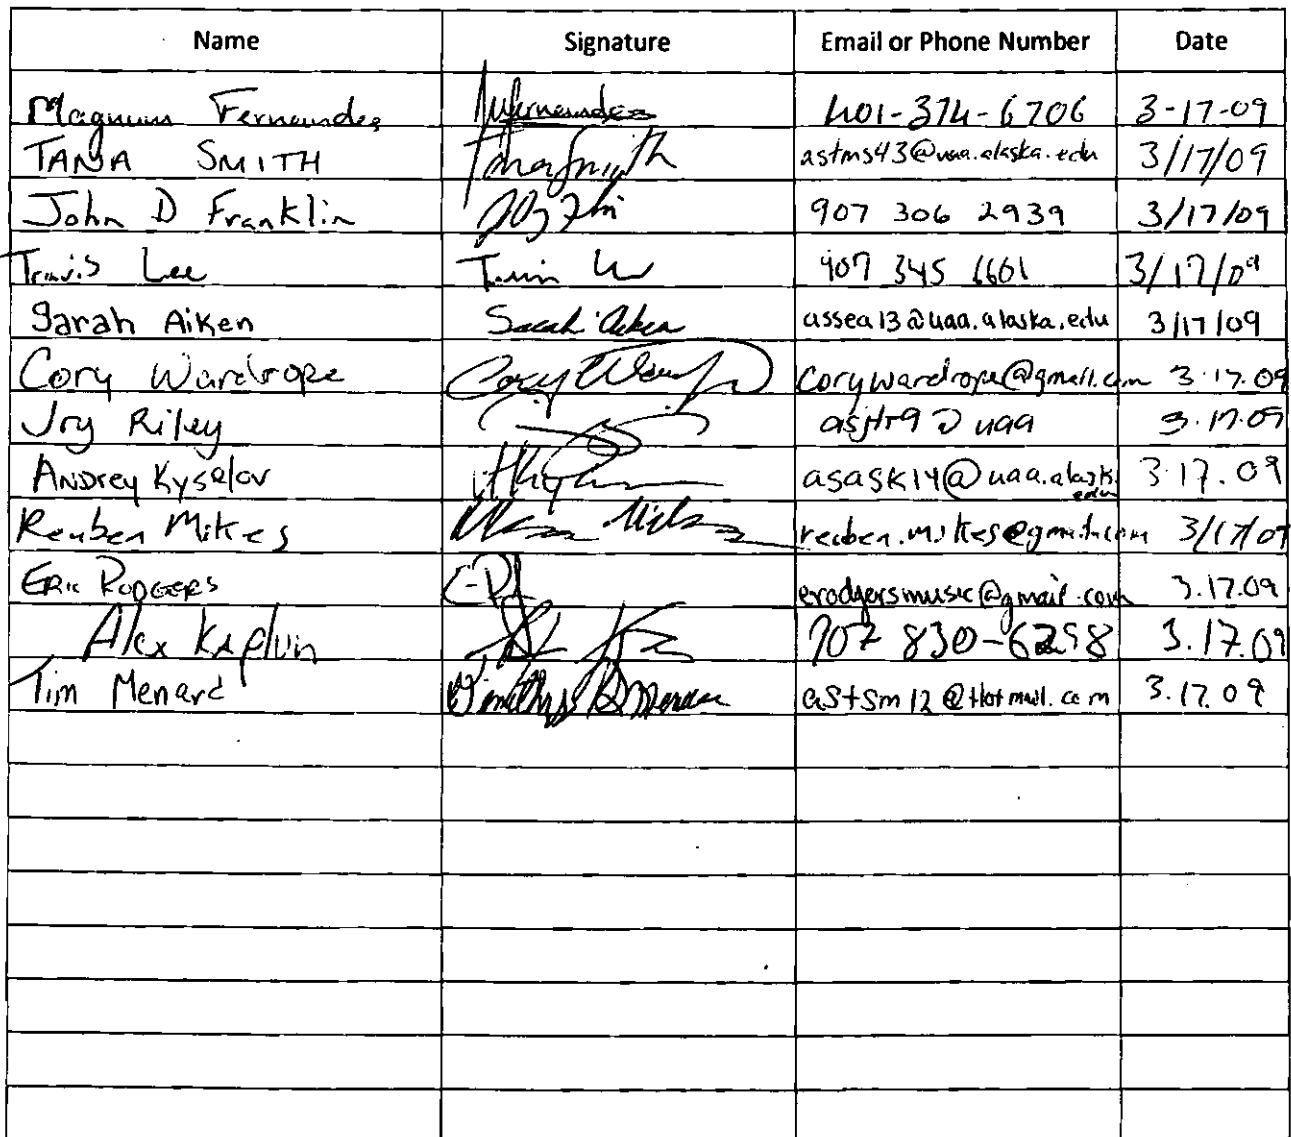 Name Signature Email or Phone Number Date
Magnum Fernandes MFernandes 401-374-6706 3-17-09
TANJA SMITH astms43@uaa.alaska.edu 3/17/09
John D Franklin 907 306 2939 3/17/09
Travis Lee 907 345 6601 3/17/09
Sarah Aiken Sarah Aiken assea13@uaa.alaska.edu 3/17/09
Cory Wardrope corywardrope@gmail.com 3.17.09
Joy Riley asjtr9@uaa 3.17.09
ANDrey Kyselov asask14@uaa.alask.edu 3.17.09
Reuben Mikes reuben.mikes@gmail.com 3/17/09
ERic RODGERS erodgersmusic@gmail.com 3.17.09
Alex 907 830-6298 3.17.09
Tim Menard astsm12@Hotmail.com 3.17.09